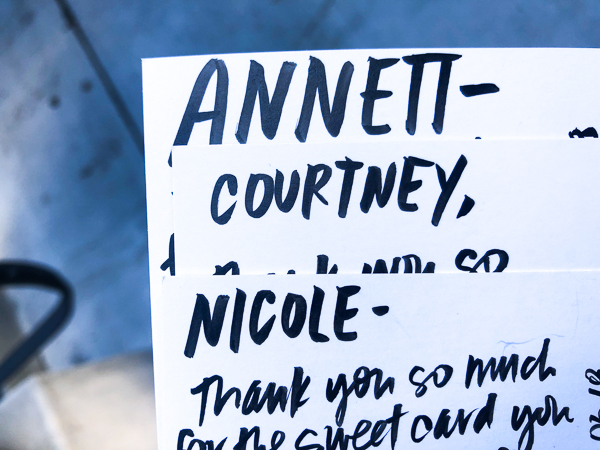 ANNETT-
COURTNEY,
thank you so
NICOLE-
Thank you so much
for the sweet card you